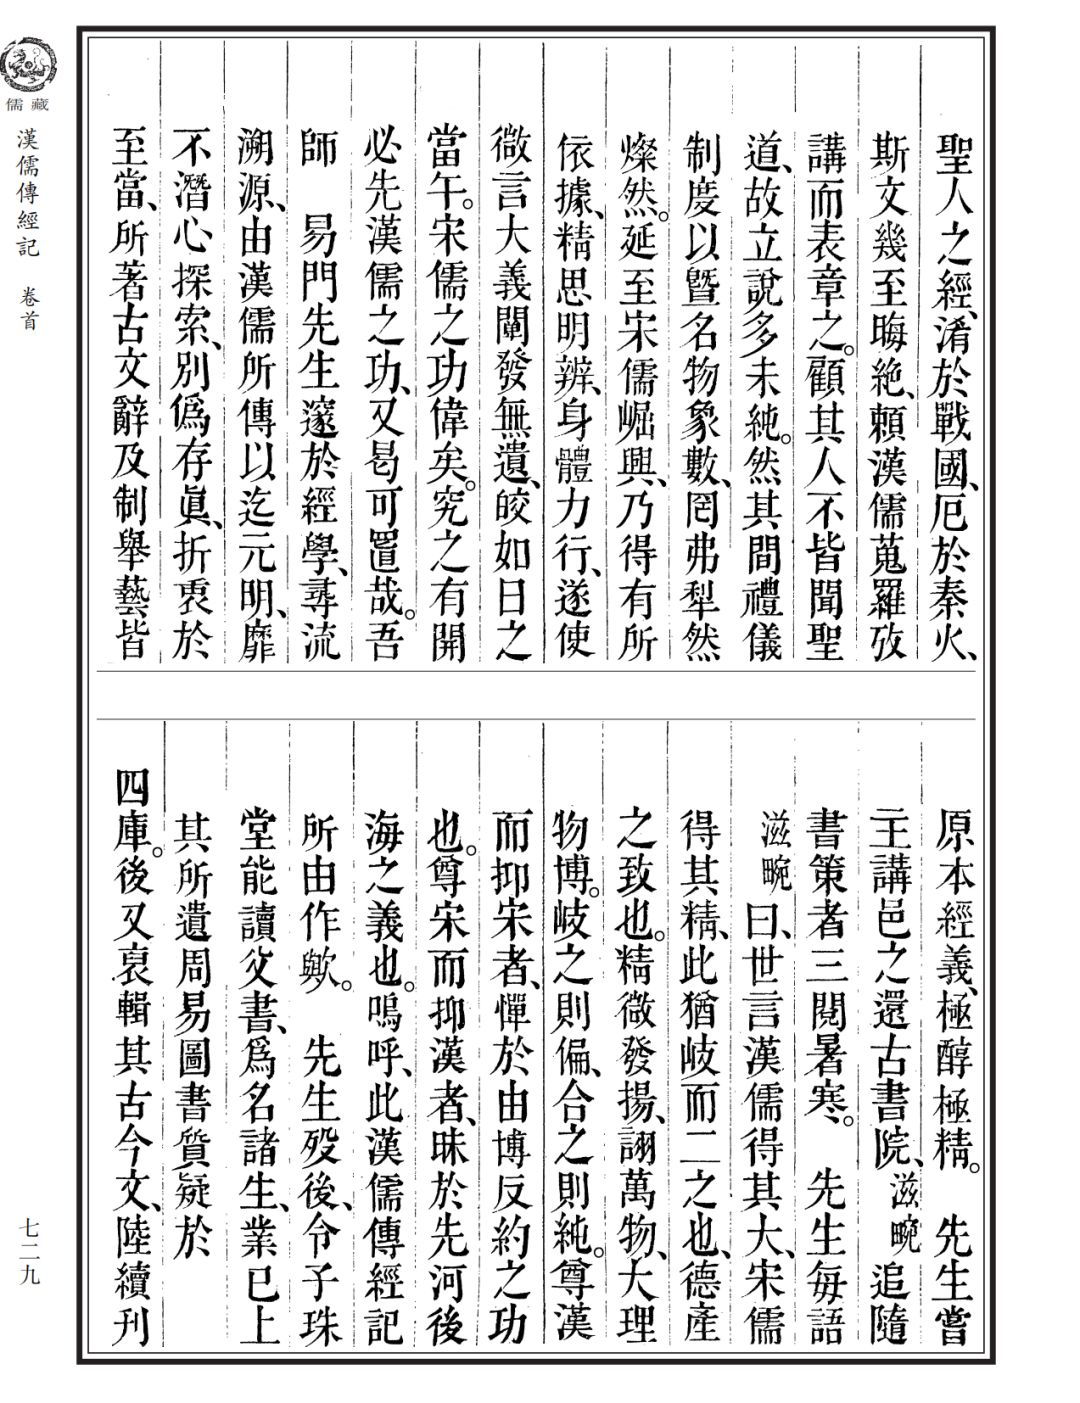 聖人之經、淆於戰國、厄於秦火、
斯文幾至晦絶、賴漢儒蒐羅攷
講而表章之。顧其人不皆聞聖
道、故立說多未純。然其間禮儀
制度以暨名物象數、罔弗犁然
燦然。延至宋儒崛興、乃得有所
依據、精思明辨、身體力行、遂使
微言大義闡發無遺、皎如日之
當午。宋儒之功偉矣。究之有開
必先漢儒之功、又曷可置哉。吾
師　易門先生邃於經學、尋流
溯源、由漢儒所傳以迄元明、靡
不潛心探索、別僞存眞、折衷於
至當、所著古文辭及制舉藝皆
原本經義、極醇極精。　先生嘗
主講邑之還古書院、滋畹追隨
書策者三閱暑寒。　先生每語
滋畹曰、世言漢儒得其大、宋儒
得其精、此猶岐而二之也、德產
之致也。精微發揚、詡萬物、大理
物博。岐之則偏、合之則純。尊漢
而抑宋者、憚於由博反約之功
也。尊宋而抑漢者、昧於先河後
海之義也。嗚呼、此漢儒傳經記
所由作歟。　先生殁後、令子珠
堂能讀父書、爲名諸生、業已上
其所遺周易圖書質疑於
四庫。後又裒輯其古今文、陸續刋
儒藏
漢儒傳經記　卷首
七二九